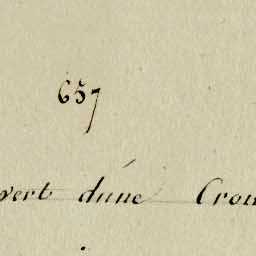 657
vert d'une Crou